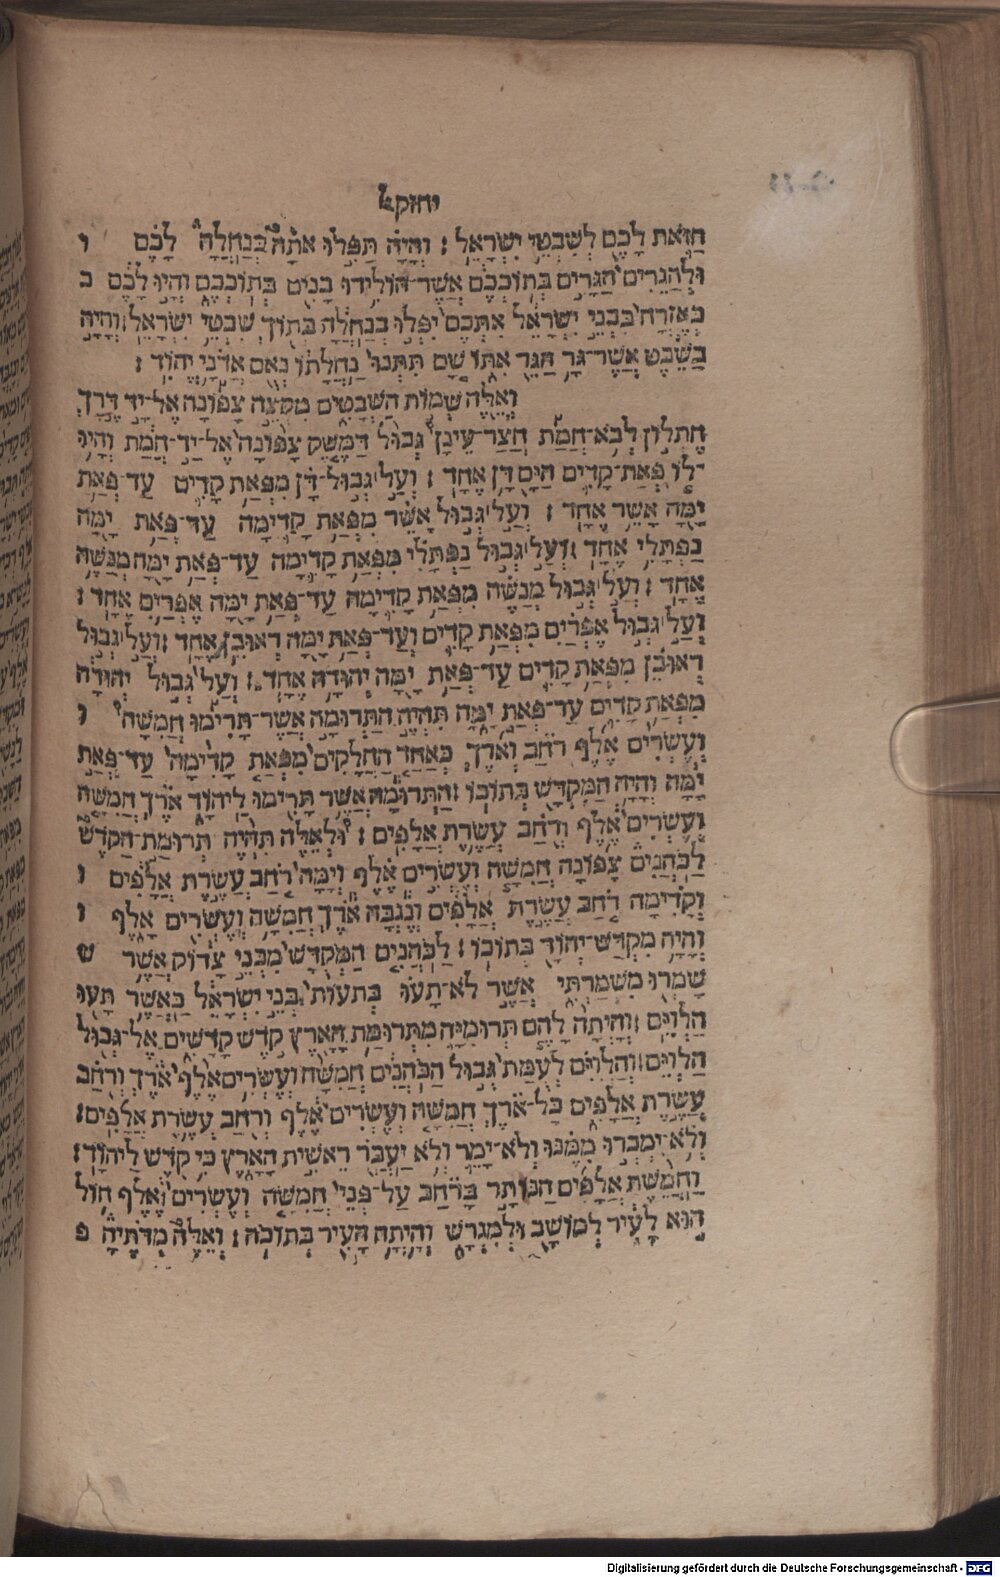 יחזקאל
הזאת לכם לשבטי ישראל : והיה תפלו אתה בנחלה לכם ו
ולהגרים הגרים בתוככם אשר הולידו בנים בתוככם והיו לכם כ
כאזרח בבני ישראל אתכם יפלו בנחלה בתוך שבטי ישראל : והיה
בשבט אשר־גר הגר אתו שם תתנו נחלתו נאם אדני יהוה :
ואלה שמות השבטים מקצה צפונה אל־יד דרך
חתלון לבא־חמת חצר־עינן גבול דמשק צפונה אל־יד־חמת והיו
־לו פאת־קדים הים דן אחד : ועל גבול־דן מפאת קדים עד־פאת
ימה אשר אחד : ועל גבול אשר מפאת קדימה עד־פאת ימה
נפתלי אחד : ועל גבול נפתלי מפאת קדימה עד־פאת ימה מנשה
אחד : ועל גבול מנשה מפאת קדימה עד־פאת ימה אפרים אחד :
ועל גבול אפרים מפאת קדים ועד־פאת ימה ראובן אחד : ועל גבול
ראובן מפאת קדים עד־פאת ימה יהודה אחד : ועל גבול יהודה
מפאת קדים עד־פאת ימה תהיה התרומה אשר־תרימו חמשה ו
ועשרים אלף רחב וארך כאחד החלקים מפאת קדימה עד־פאת
ימה והיה המקדש בתוכו : התרומה אשר תרימו ליהוה ארך חמשה
ועשרים אלף ורחב עשרת אלפים : ולאלה תהיה תרומת הקדש
לכהנים צפונה חמשה ועשרים אלף וימה רחב עשרת אלפים ו
וקדימה רחב עשרת אלפים ונגבה ארך חמשה ועשרים אלף ו
והיה מקדש־יהוה בתוכו : לכהנים המקדש מבני צדוק אשר ש
שמרו משמרתי אשר לא־תעו בתעות בני ישראל כאשר תעו
הלוים : והיתה להם תרומיה מתרומת הארץ קדש קדשים אל־גבול
הלוים : והלוים לעמת גבול הכהנים חמשה ועשרים אלף ארך ורחב
עשרת אלפים כל־ארך חמשה ועשרים אלף ורחב עשרת אלפים :
ולא־ימכרו ממנו ולא־ימר ולא יעבר ראשית הארץ כי־קדש ליהוה :
וחמשת אלפים הנותר ברחב על־פני חמשה ועשרים אלף חול
הוא לעיר למושב ולמגרש והיתה העיר בתוכה : ואלה מדתיה פ
Digitalisierung gefördert durch die Deutsche Forschungsgemeinschaft - DFG